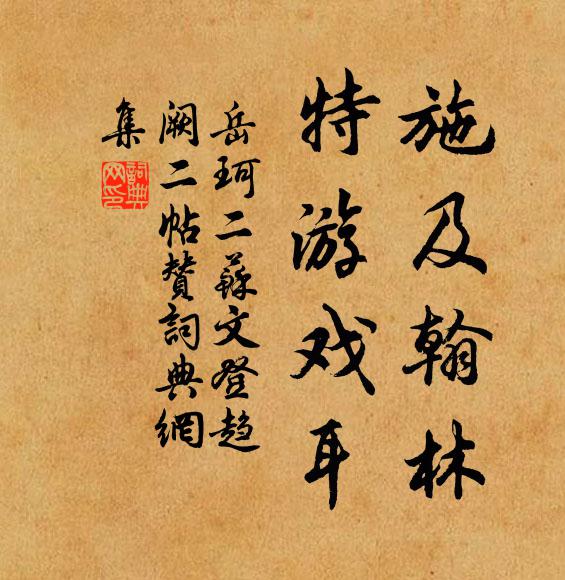 施及翰林
特游戏耳
岳珂二蘇文登趋
阙二帖賛詞典網
集
詞典
网印